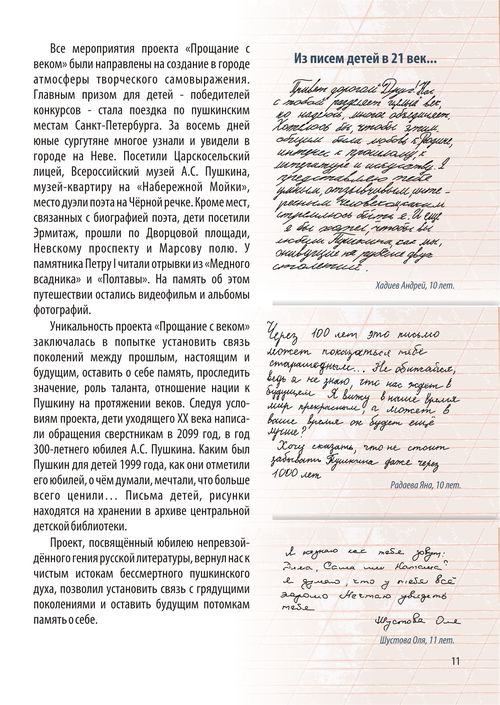 Все мероприятия проекта «Прощание с
веком» были направлены на создание в городе
атмосферы творческого самовыражения.
Главным призом для детей - победителей
конкурсов - стала поездка по пушкинским
местам Санкт-Петербурга. За восемь дней
юные сургутяне многое узнали и увидели в
городе на Неве. Посетили Царскосельский
лицей, Всероссийский музей А.С. Пушкина,
музей-квартиру на «Набережной Мойки»,
место дуэли поэта на Чёрной речке. Кроме мест,
связанных с биографией поэта, дети посетили
Эрмитаж, прошли по Дворцовой площади,
Невскому проспекту и Марсову полю. У
памятника Петру I читали отрывки из «Медного
всадника» и «Полтавы». На память об этом
путешествии остались видеофильм и альбомы
фотографий.
Уникальность проекта «Прощание с веком»
заключалась в попытке установить связь
поколений между прошлым, настоящим и
будущим, оставить о себе память, проследить
значение, роль таланта, отношение нации к
Пушкину на протяжении веков. Следуя усло-
виям проекта, дети уходящего XX века написа-
ли обращения сверстникам в 2099 год, в год
300-летнего юбилея А.С. Пушкина. Каким был
Пушкин для детей 1999 года, как они отметили
его юбилей, о чём думали, мечтали, что больше
всего ценили… Письма детей, рисунки
находятся на хранении в архиве центральной
детской библиотеки.
Проект, посвящённый юбилею непревзой-
дённого гения русской литературы, вернул нас к
чистым истокам бессмертного пушкинского
духа, позволил установить связь с грядущими
поколениями и оставить будущим потомкам
память о себе.
Из писем детей в 21 век...
Привет дорогой Друг! Нас
с тобой разделяет целый век,
но надеюсь, многое объединяет.
Хотелось бы, чтобы этим
общим была любовь к Родине,
интерес к прошлому,
литературе и искусству. Я
представляю тебя
умным, отзывчивым, инте-
ресным человеком, каким
стремлюсь быть я. И ещё
я бы хотел, чтобы вы
любили Пушкина, как мы,
живущие на рубеже двух
столетий.
Хадиев Андрей, 10 лет.
Через 100 лет это письмо
может показаться тебе
старомодным... Не обижайся,
ведь я не знаю, что нас ждёт в
будущем. Я вижу в наше время
мир прекрасным, а может в
ваше время он будет ещё
лучше?
Хочу сказать, что не стоит
забывать Пушкина даже через
1000 лет
Радаева Яна, 10 лет.
Я не знаю как тебя зовут:
Дима, Саша или Наташа?
Я думаю, что у тебя всё
хорошо Мечтаю увидеть
тебя
Шустова Оля
Шустова Оля, 11 лет.
11